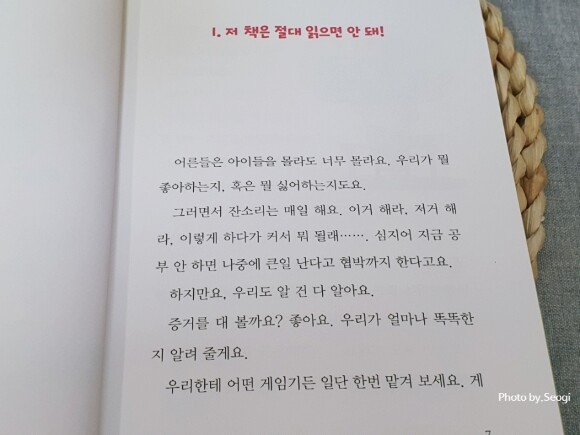 1. 저 책은 절대 읽으면 안 돼!
어른들은 아이들을 몰라도 너무 몰라요. 우리가 뭘
좋아하는지, 혹은 뭘 싫어하는지도요.
그러면서 잔소리는 매일 해요. 이거 해라, 저거 해
라, 이렇게 하다가 커서 뭐 될래……. 심지어 지금 공
부 안 하면 나중에 큰일 난다고 협박까지 한다고요.
하지만요, 우리도 알 건 다 알아요.
증거를 대 볼까요? 좋아요. 우리가 얼마나 똑똑한
지 알려 줄게요.
우리한테 어떤 게임기든 일단 한번 맡겨 보세요. 게
7
Photo by.Seogi